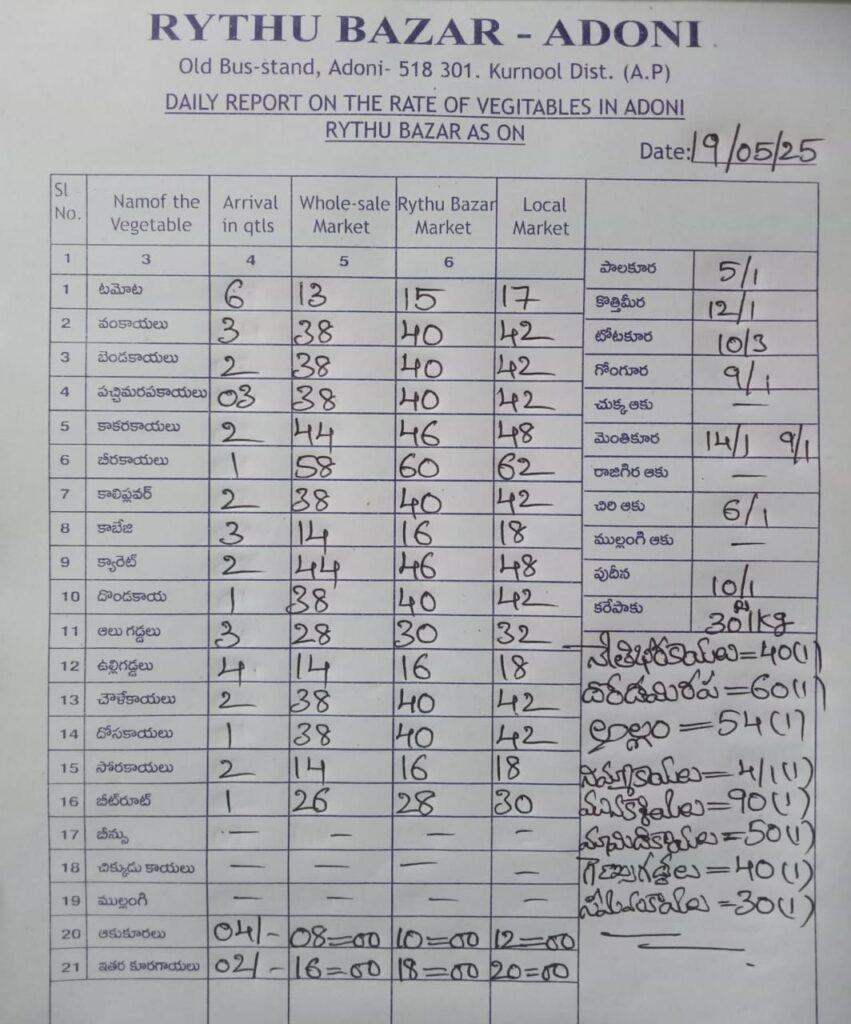 RYTHU BAZAR - ADONI
Old Bus-stand, Adoni- 518 301. Kurnool Dist. (A.P)
DAILY REPORT ON THE RATE OF VEGITABLES IN ADONI
RYTHU BAZAR AS ON
Date: 19/05/25
Sl No. Namof the Vegetable Arrival in qtls Whole-sale Market Rythu Bazar Market Local Market
1 3 4 5 6
1 టమోట 6 13 15 17
2 వంకాయలు 3 38 40 42
3 బెండకాయలు 2 38 40 42
4 పచ్చిమిరపకాయలు 03 38 40 42
5 కాకరకాయలు 2 44 46 48
6 బీరకాయలు 1 58 60 62
7 కాలిఫ్లవర్ 2 38 40 42
8 కాబేజి 3 14 16 18
9 క్యారెట్ 2 44 46 48
10 దొండకాయ 1 38 40 42
11 ఆలు గడ్డలు 3 28 30 32
12 ఉల్లిగడ్డలు 4 14 16 18
13 చౌళేకాయలు 2 38 40 42
14 దోసకాయలు 1 38 40 42
15 సోరకాయలు 2 14 16 18
16 బీట్‌రూట్ 1 26 28 30
17 బీన్సు — — — —
18 చిక్కుడు కాయలు — — — —
19 ముల్లంగి — — — —
20 ఆకుకూరలు 04/- 08=00 10=00 12=00
21 ఇతర కూరగాయలు 02/- 16=00 18=00 20=00
పాలకూర 5/1
కొత్తిమీర 12/1
టోటకూర 10/3
గోంగూర 9/1
చుక్క ఆకు —
మెంతికూర 14/1 9/1
రాజగిర ఆకు —
చిరి ఆకు 6/1
ముల్లంగి ఆకు —
పుదీన 10/1
కరేపాకు 30/1kg
నేతిబీరకాయలు=40(1)
=60(1)
అల్లం=54(1)
నిమ్మకాయలు=4/1(1)
మునక్కాయలు=90(1)
మామిడికాయలు=50(1)
గెణుసుగడ్డలు=40(1)
=30(1)